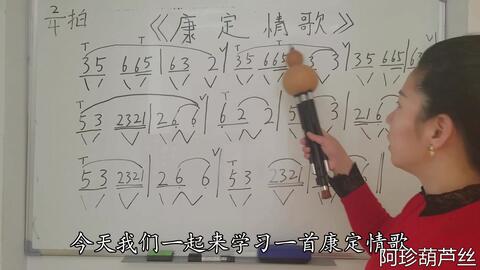 2/4拍 《康定情歌》
35 665 | 63 2 | 35 665 3 3 | 35 665 | 6
53 2321 | 26 6 | 6 2 2 | 5 3 | 216
53 2321 | 26 6 | 53 2321
今天我们一起来学习一首康定情歌
阿珍葫芦丝